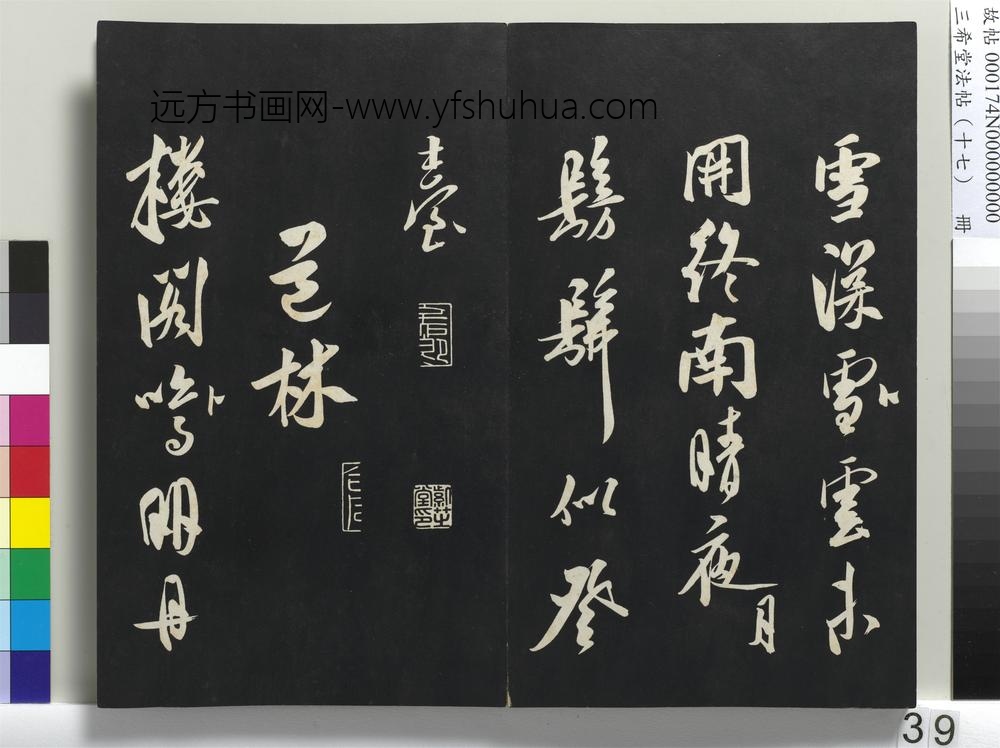 故帖 000174N000000000
三希堂法帖（十七） 冊
远方书画网-www.yfshuhua.com
雪深雪卜雲未
開終南晴夜月
髣髴似登
臺
道林
樓閣鳴卜明丹
39